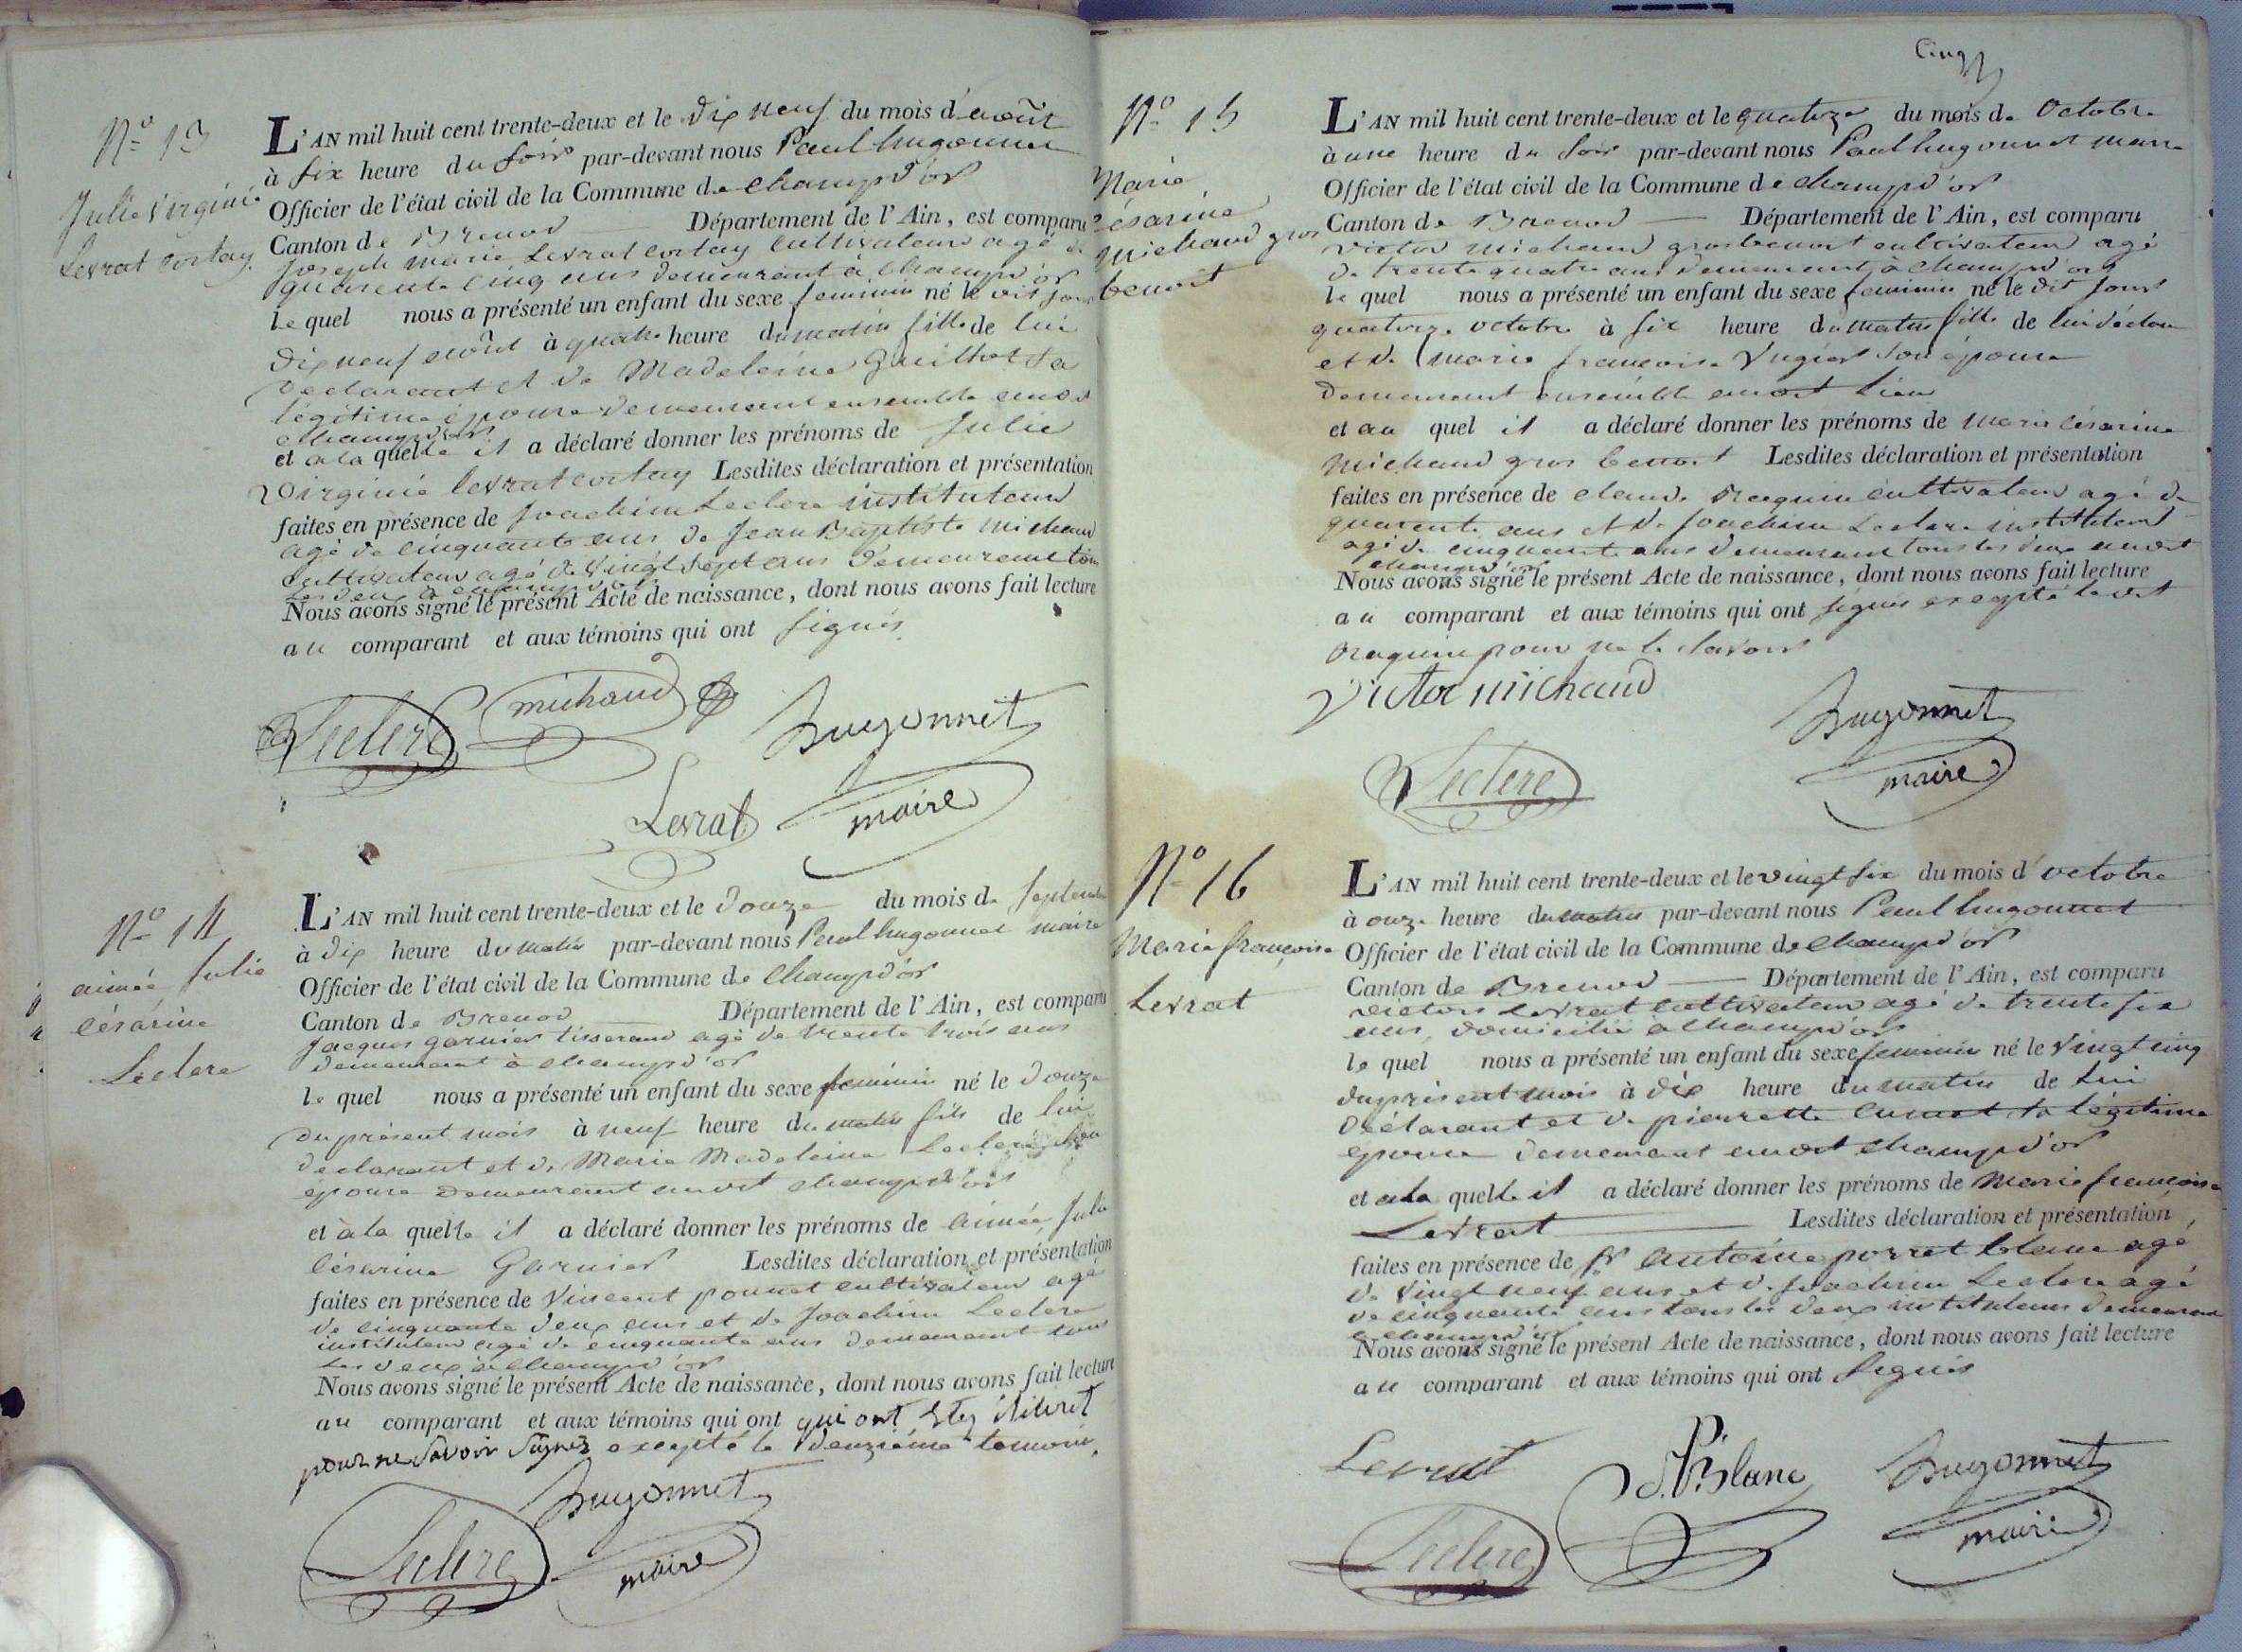 N.o 13
Julie Virginie
Levrat Cortay.
L'AN mil huit cent trente-deux et le dix neuf du mois d'août
à six heure du soir par-devant nous Paul hugonnet
Officier de l'état civil de la Commune de champd'or
Canton de Brenod Département de l'Ain, est comparu
joseph marie Levrat cortay cultivateur agé de
quarente cinq ans demeurant à champd'or
le quel nous a présenté un enfant du sexe feminin né le dit jour
dix neuf août à quatre heure du matin fille de lui
declarant et de Madeleine Guillot sa
légitime épouse demeurant ensemble audit
champd'or
et a la quelle il a déclaré donner les prénoms de Julie
Virginie levrat cortay Lesdites déclaration et présentation
faites en présence de joachim Leclerc instituteur
agé de cinquante ans de jean Baptiste michaud
cultivateur agé de vingt sept ans demeurant tous
les deux à champd'or
Nous avons signé le présent Acte de naissance, dont nous avons fait lecture
au comparant et aux témoins qui ont signés.
Leclerc michaud hugonnet
Levrat maire
N.o 14
aimée Julie
césarine
Leclerc
L'AN mil huit cent trente-deux et le douze du mois de septembre
à dix heure du matin par-devant nous Paul hugonnet maire
Officier de l'état civil de la Commune de champd'or
Canton de Brenod Département de l'Ain, est comparu
jacques garnier tisserand agé de trente trois ans
demeurant à champd'or
le quel nous a présenté un enfant du sexe feminin né le douze
du présent mois à neuf heure du matin fils de lui
declarant et de Marie Madeleine Leclerc son
épouse demeurant audit champd'or
et à la quelle il a déclaré donner les prénoms de aimée Julie
césarine Garnier Lesdites déclaration et présentation
faites en présence de Vincent ponnet cultivateur agé
de cinquante deux ans et de Joachim Leclerc
instituteur agé de cinquante ans demeurant tous
les deux à champd'or
Nous avons signé le présent Acte de naissance, dont nous avons fait lecture
au comparant et aux témoins qui ont qui ont
pour ne savoir signer excepté le deuzième temoin.
hugonnet
Leclerc maire
Cinq
N.o 15
Marie
césarine
michaud gros
benoit
L'AN mil huit cent trente-deux et le quatorze du mois de Octobre
à une heure du soir par-devant nous Paul hugonnet maire
Officier de l'état civil de la Commune de champd'or
Canton de Brenod Département de l'Ain, est comparu
victor michaud gros benoit cultivateur agé
de trente quatre ans demeurant à champd'or
le quel nous a présenté un enfant du sexe feminin né le dit jour
quatorze octobre à six heure du matin fille de lui déclarant
et de marie francoise son épouse
demeurant ensemble audit lieu
et au quel il a déclaré donner les prénoms de marie césarine
michaud gros benoit Lesdites déclaration et présentation
faites en présence de claude cultivateur agé de
quarente ans et de Joachim Leclerc instituteur
agé de cinquante ans demeurant tous les deux audit
champd'or
Nous avons signé le présent Acte de naissance, dont nous avons fait lecture
au comparant et aux témoins qui ont signés excepté ledit
pour ne le savoir
Victor michaud hugonnet
Leclerc maire
N.o 16
Marie françoise
Levrat
L'AN mil huit cent trente-deux et le vingt six du mois d'octobre
à onze heure du matin par-devant nous Paul hugonnet
Officier de l'état civil de la Commune de champd'or
Canton de Brenod Département de l'Ain, est comparu
victor Levrat cultivateur agé de trente six
ans, domicilié à champd'or
le quel nous a présenté un enfant du sexe feminin né le vingt cinq
du présent mois à dix heure du matin de lui
déclarant et de pierrette sa légitime
épouse demeurant audit champd'or
et a la quelle il a déclaré donner les prénoms de marie françoise
Levrat Lesdites déclaration et présentation
faites en présence de antoine porret blanc agé
de vingt neuf ans et de joachim Leclerc agé
de cinquante ans tous les deux instituteurs demeurant
a champd'or
Nous avons signé le présent Acte de naissance, dont nous avons fait lecture
au comparant et aux témoins qui ont signés
Levrat Blanc hugonnet
Leclerc maire